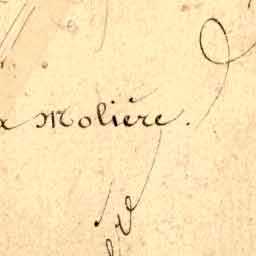 Molière.